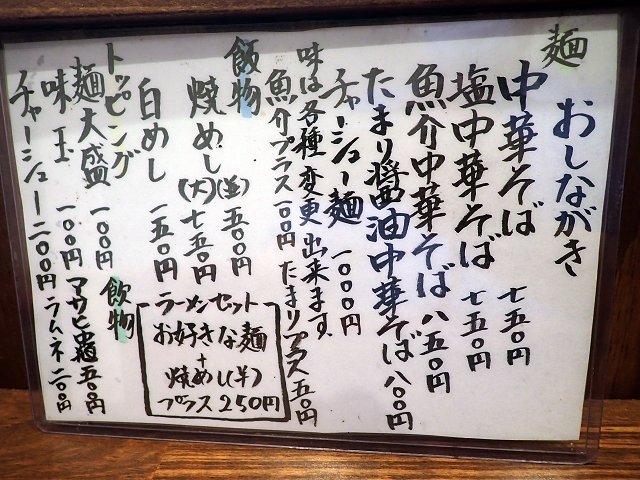 おしながき
麺
中華そば 七五〇円
塩中華そば 七五〇円
魚介中華そば 八五〇円
たまり醤油中華そば 八〇〇円
チャーシュー麺 一〇〇〇円
味は各種変更出来ます。
魚介プラス一〇〇円 たまりプラス五〇円
飯物
焼めし(並) 五〇〇円
(大) 七五〇円
白めし 一五〇円
トッピング
麺大盛 一〇〇円
味玉 一〇〇円
チャーシュー 二〇〇円
飲物
アサヒ中瓶 五〇〇円
ラムネ 二〇〇円
ラーメンセット
お好きな麺
+
焼めし(半)
プラス250円